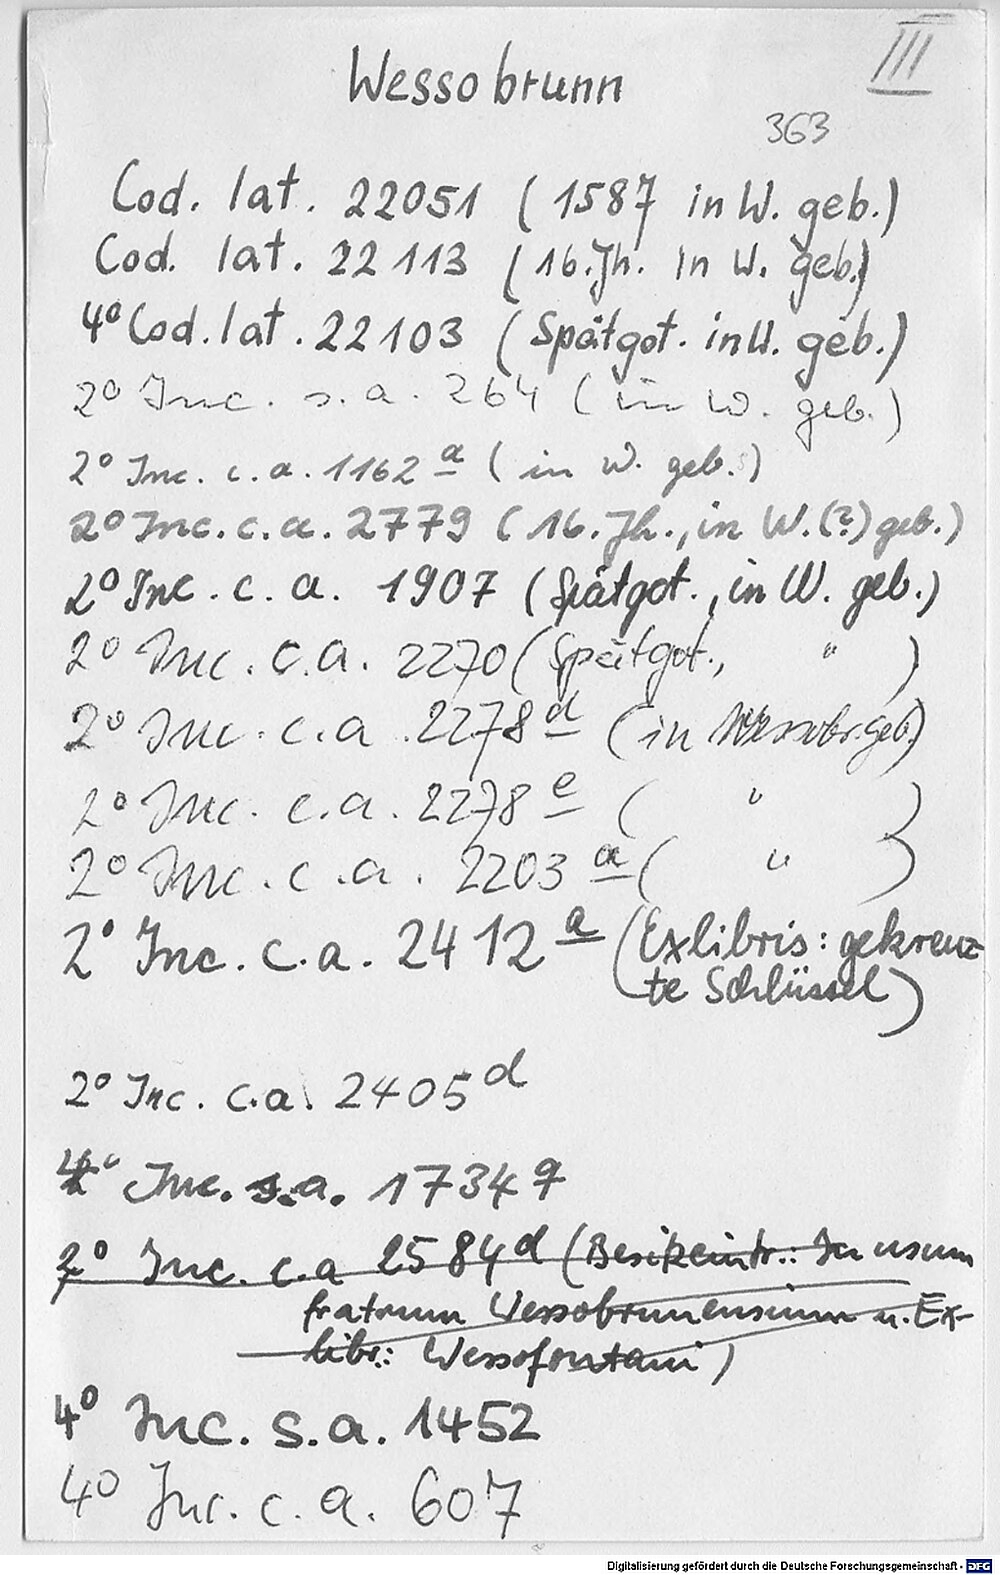 III
Wessobrunn
363
Cod. lat. 22051 (1587 in W. geb.)
Cod. lat. 22113 (16. Jh. in W. geb.)
4° Cod. lat. 22103 (Spätgot. in W. geb.)
2° Inc. s.a. 264 (in W. geb.)
2° Inc. c.a. 1162 a (in W. geb.)
2° Inc. c.a. 2779 (16. Jh., in W. (?) geb.)
2° Inc. c.a. 1907 (Spätgot., in W. geb.)
2° Inc. c.a. 2270 (Spätgot., " )
2° Inc. c.a. 2278 d (in Wessobr. geb.)
2° Inc. c.a. 2278 e ( " )
2° Inc. c.a. 2203 a ( " )
2° Inc. c.a. 2412 a (Exlibris: gekreuz-
te Schlüssel)
2° Inc. c.a. 2405 d
4° Inc. s.a. 1734 q
2° Inc. c.a 2584 d (Besitzeintr.: In usum
fratrum Wessobrunensium u. Ex-
libr.: Wessofontani)
4° Inc. s.a. 1452
4° Inc. c.a. 607
Digitalisierung gefördert durch die Deutsche Forschungsgemeinschaft - DFG